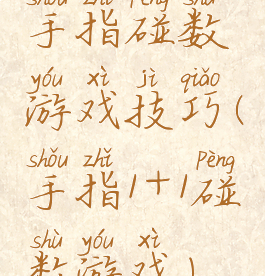 shǒu zhǐ pèng shù
手指碰数
yóu xì jì qiǎo
游戏技巧(
shǒu zhǐ pèng
手指1+1碰
shù yóu xì
数游戏)